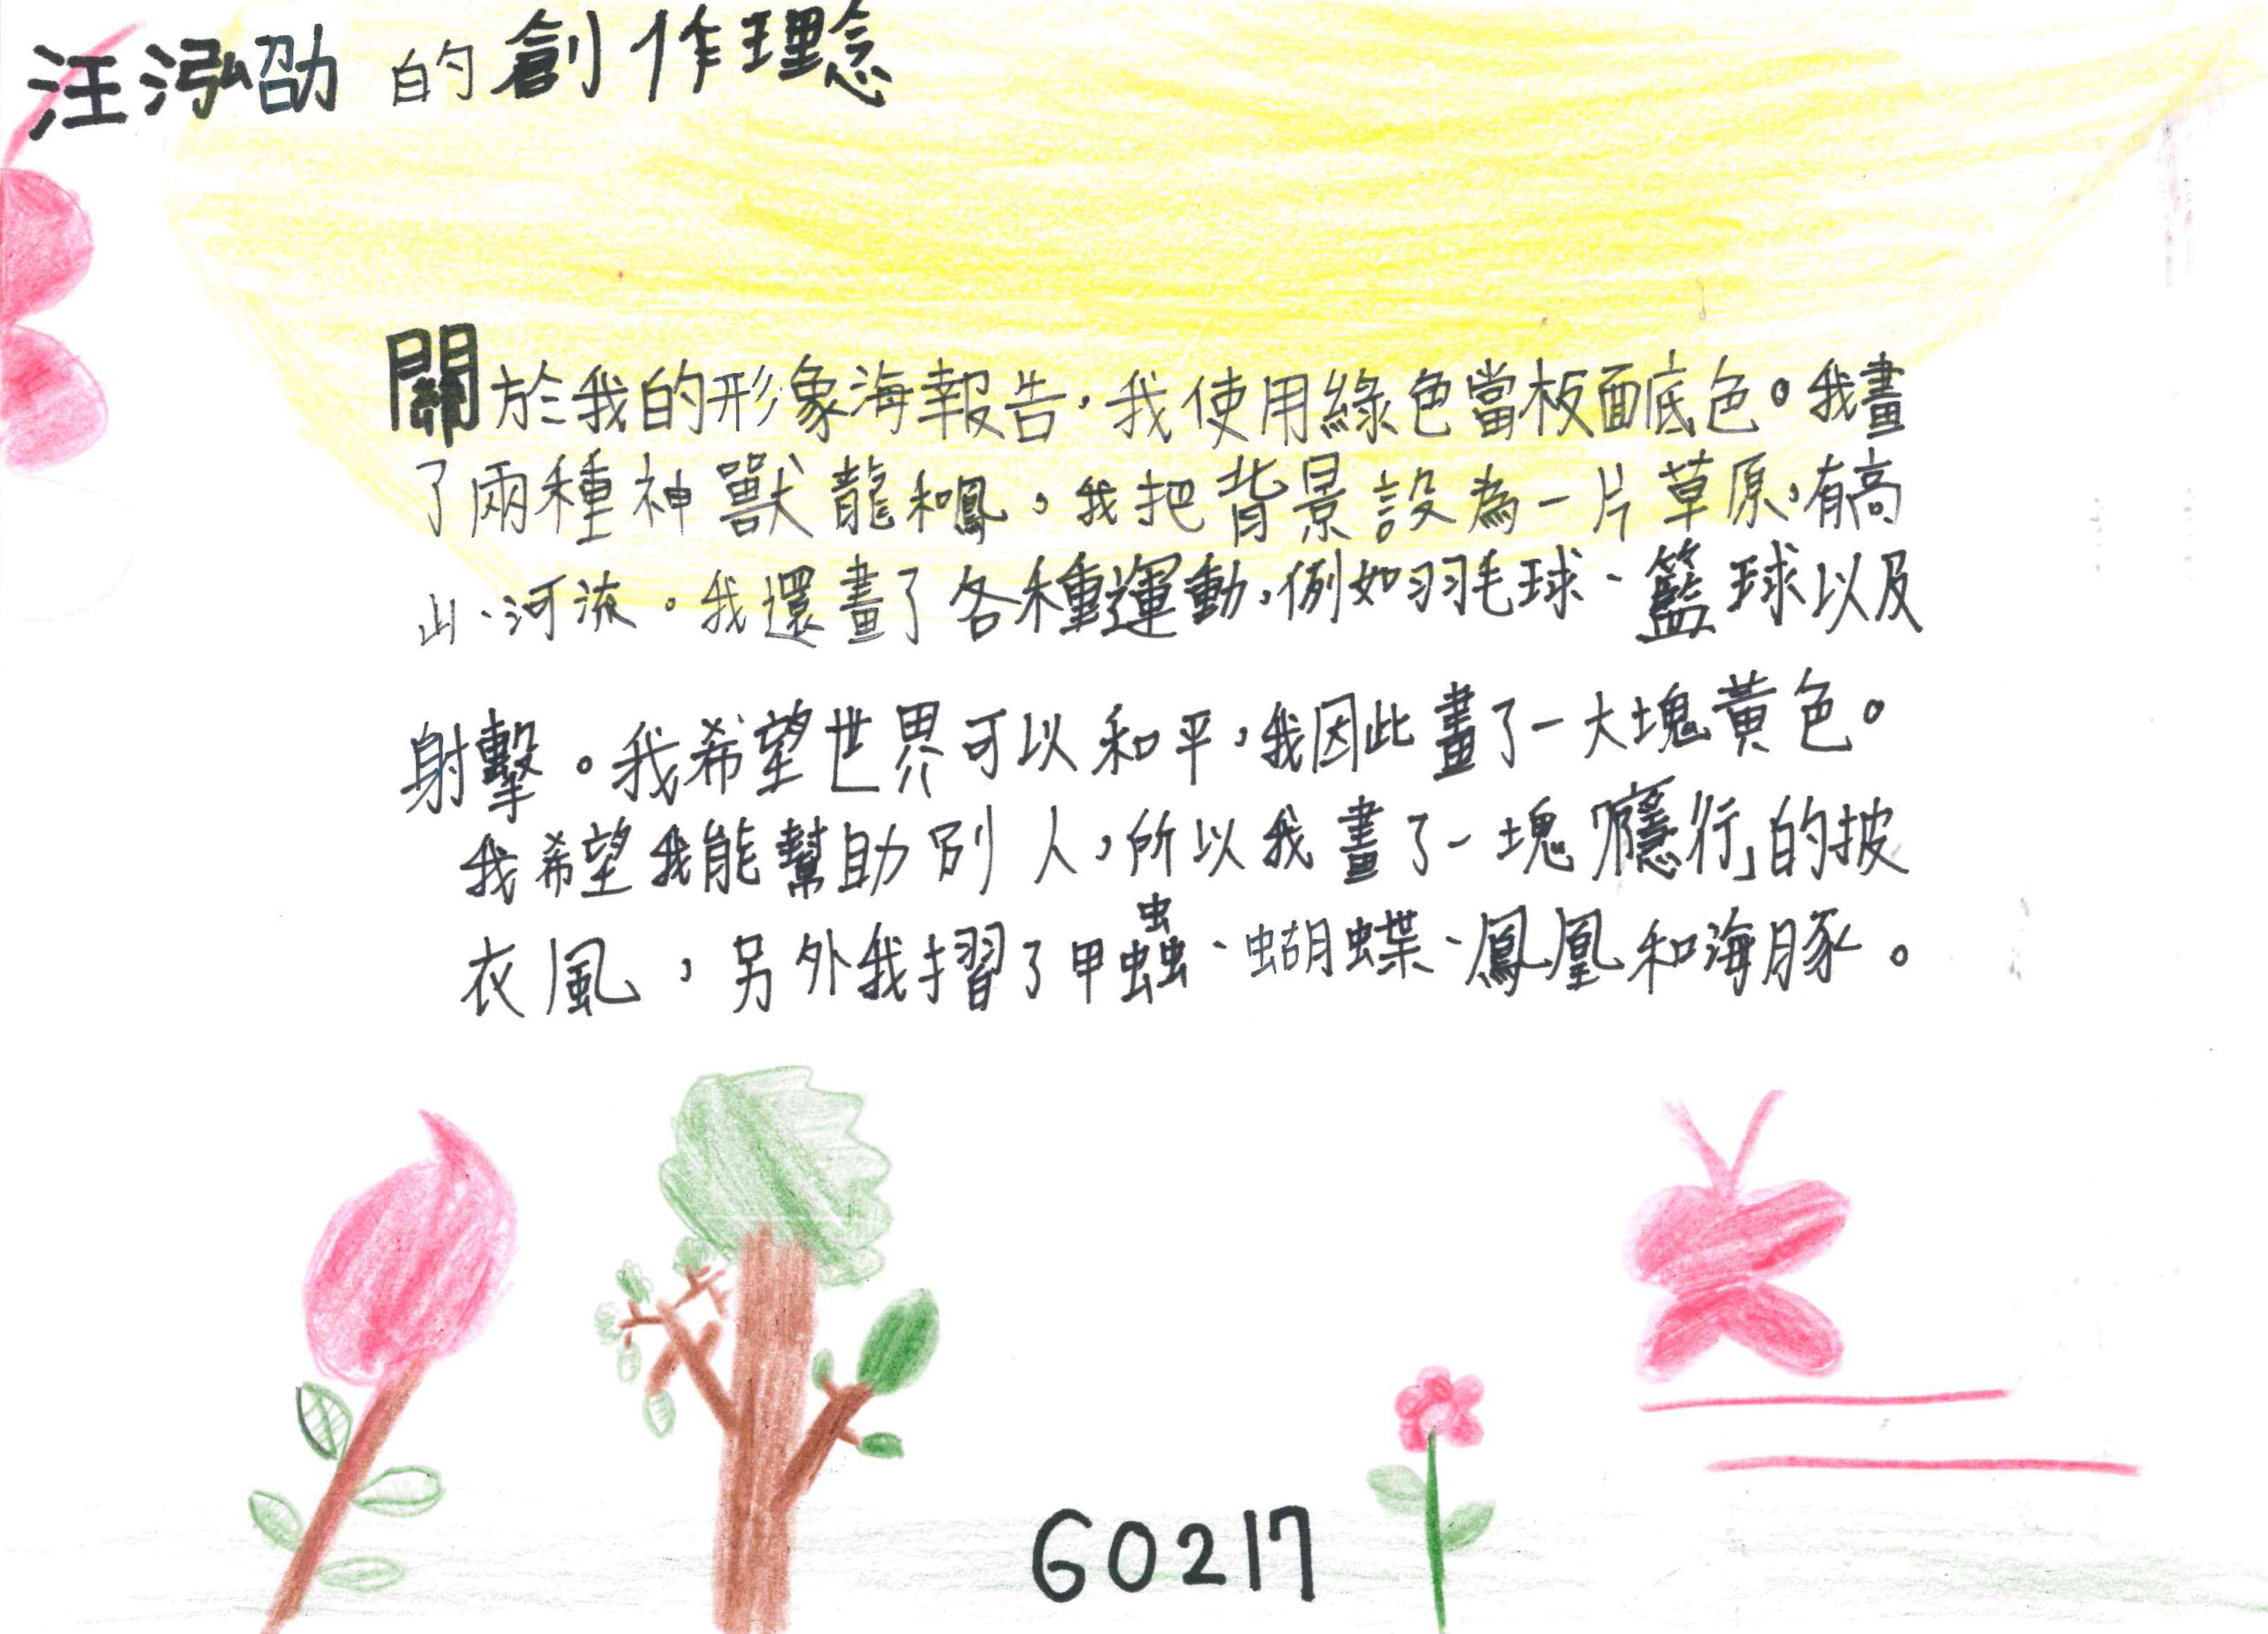 汪泓劭 的創作理念
關於我的形象海報告,我使用綠色當板面底色。我畫
了兩種神獸龍和鳳,我把背景設為一片草原,有高
山、河流。我還畫了各種運動,例如羽毛球、籃球以及
射擊。我希望世界可以和平,我因此畫了一大塊黃色。
我希望我能幫助別人,所以我畫了一塊「癮行」的披
衣風,另外我摺了甲蟲、蝴蝶、鳳凰和海豚。
60217